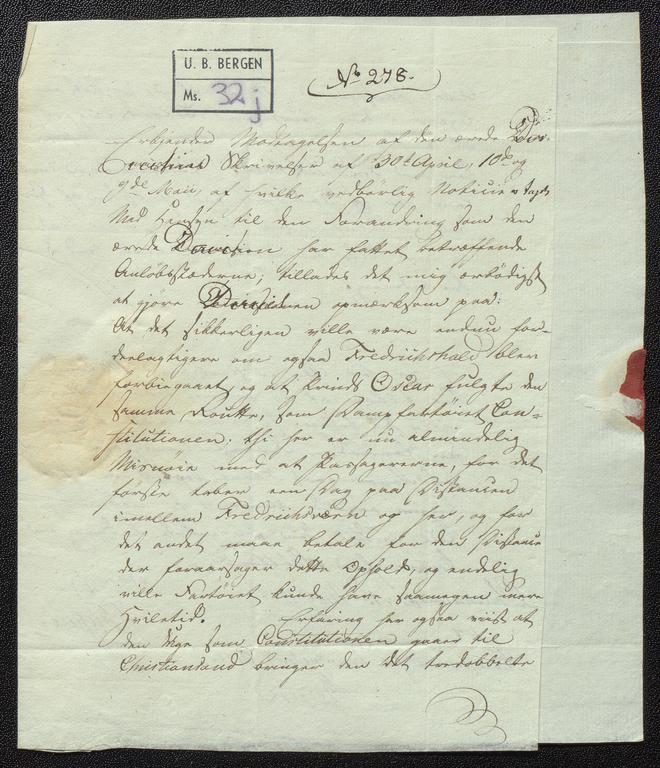 U. B. BERGEN
Ms. 32 j
No 278.
Erkjender Modtagelsen af den ærede
Skrivelser af 30te April, 10de og
9de Maii, af hvilke vedbørlig Noticie
Med Hensyn til den Forandring som den
ærede har fattet betræffende
Anløbsstæderne; tillades det mig ærbødigst
at gjøre opmærksom paa:
At det sikkerligen ville være endnu for-
deelagtigere om ogsaa Fredrikshald blev
forbiegaaet, og at Prinds Oscar fulgte den
samme Routte, som Dampfartøiet Con-
stitutionen; thi her er nu almindelig
Misnøie med at Passagererne, for det
første taber een Dag paa Distancen
imellem Fredriksværn og her, og for
det andet maae betale for den Distance
der foraarsager dette Ophold, og endlig
ville Fartøiet kunde have saamegen mere
Hviletid. Erfaring her ogsaa viist at
den Uge som Constitutionen gaaer til
Christiansand bringer den det tredobbelte